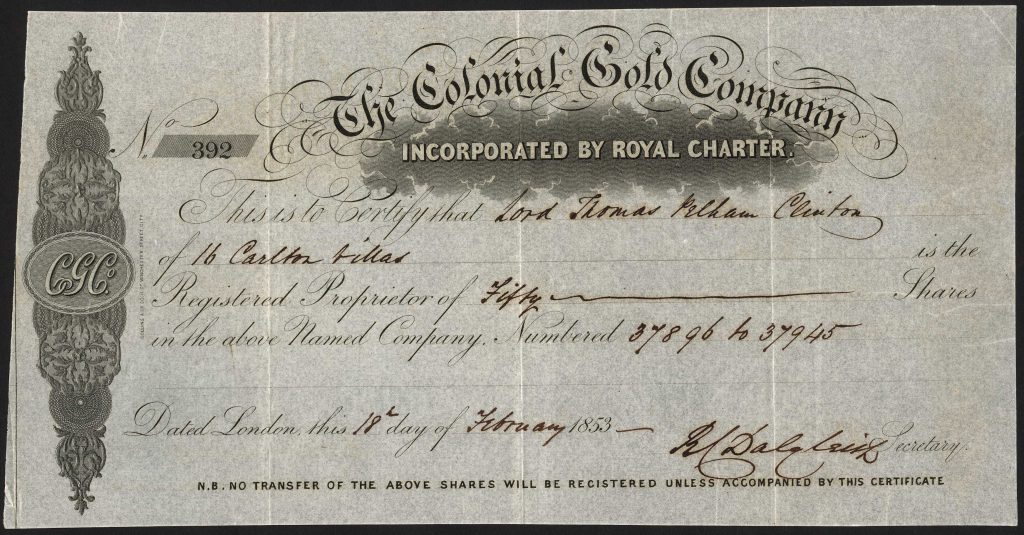 The Colonial Gold Company
INCORPORATED BY ROYAL CHARTER.
No. 392
This is to Certify that Lord Thomas Pelham Clinton
of 16 Carlton Villas is the
Registered Proprietor of Fifty Shares
in the above Named Company. Numbered 37896 to 37945
CGCo.
Dated London, this 18th day of February 1853
Dalgleish Secretary.
N.B. NO TRANSFER OF THE ABOVE SHARES WILL BE REGISTERED UNLESS ACCOMPANIED BY THIS CERTIFICATE